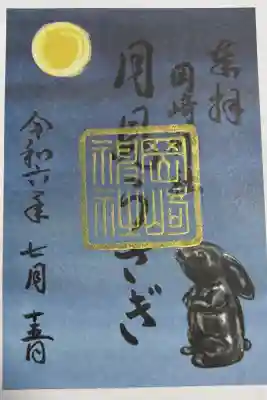 奉拝
岡崎
月見うさぎ
岡崎神社
令和六年 七月 十五日